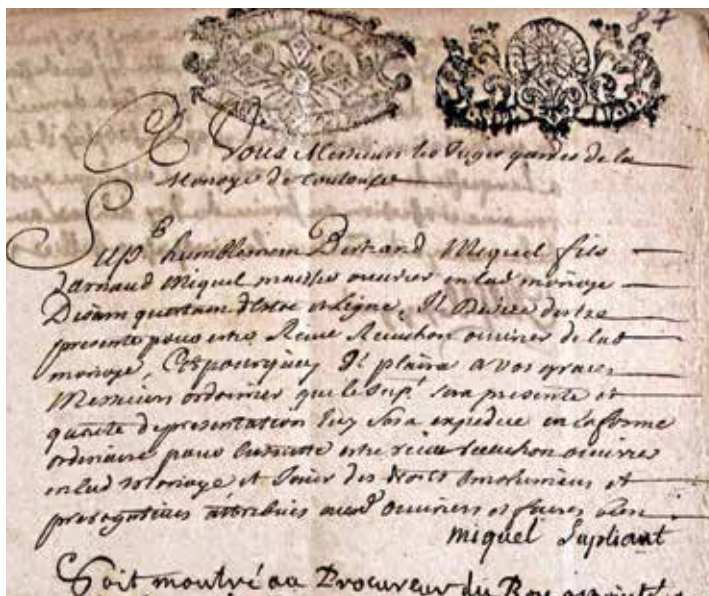 87
A Vous Messieurs les Juges gardes de la
Monoye de toulouse
Sup.b humblement Bertrand Miquel fils
darnaud Miquel maistre ouvrier en lad monoye
Disant questant destoc et Ligne, Il Desire destre
presente pour estre Receu Recuchon ouvrier de lad
monoye, Cest pourquoy Il plaira a vos graces
Messieurs ordonner que le supt sera presente et
quacte de presentation luy sera expedie en la forme
ordinaire pour ensuitte estre receu recuchon ouvrier
en lad monoye et Jouir des droits Emolumens et
prerogatives attribues ausd ouvriers et faires bien
miquel Supliant
Soit montré au Procureur du Roy